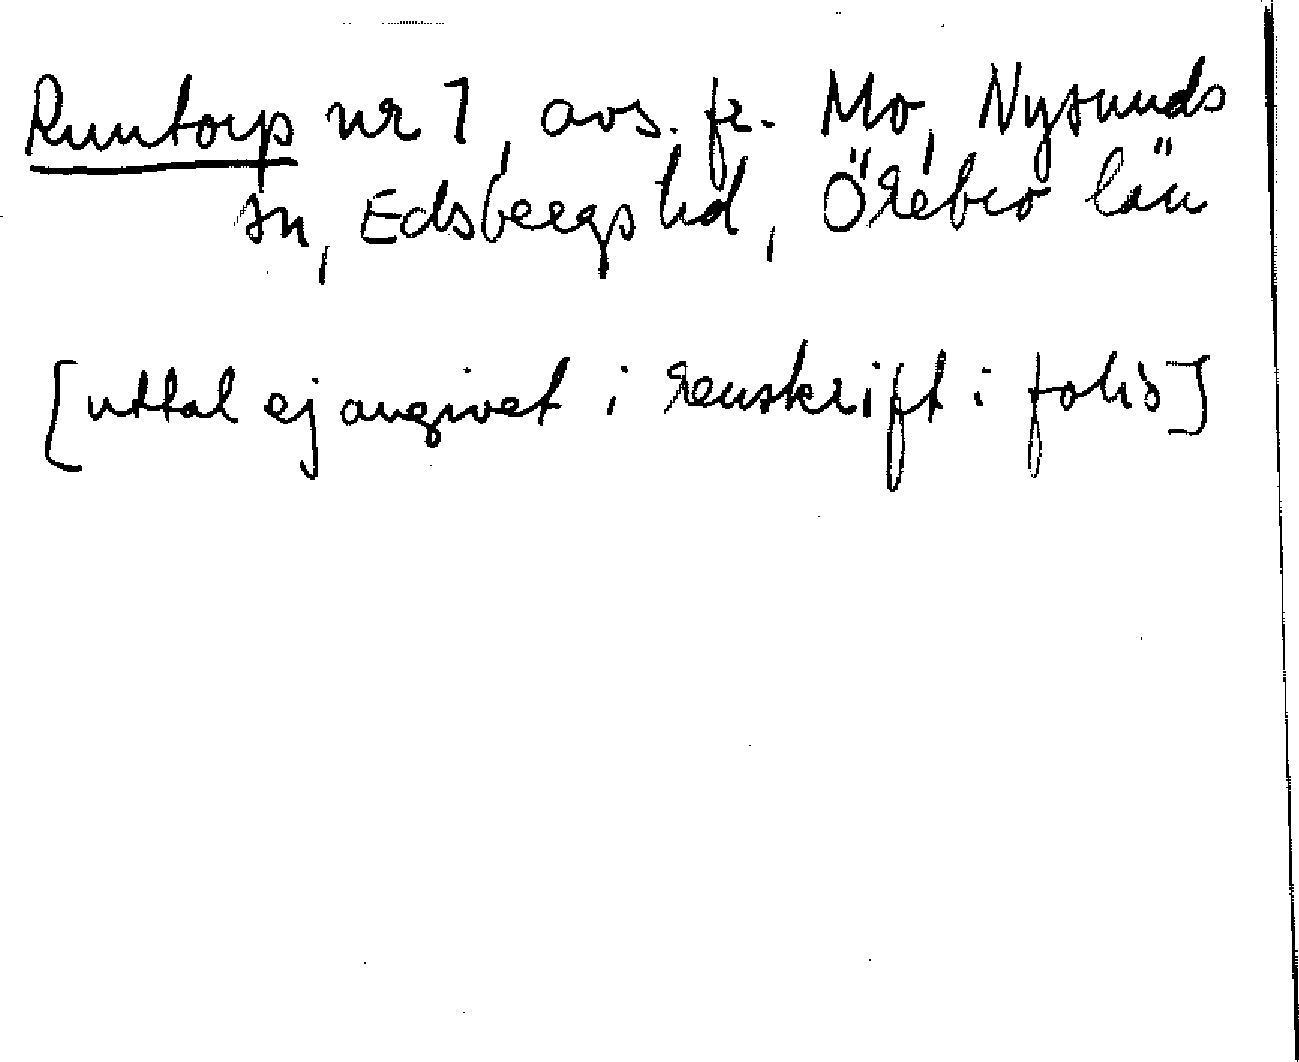 Runtorp nr 1, avs. fr. Mo, Nysunds
sn, Edsbergs hd, Örebro län
[uttal ej angivet i renskrift i folio]